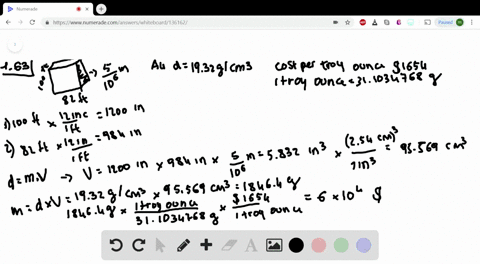 Numerade
https://www.numerade.com/answers/whiteboard/136362/
Paused
1.63)
100ft
5/10^6 in
82 ft
Au d=19.32g/cm3
cost per troy ounce $1654
1 troy ounce=31.1034768 g
1) 100 ft × 12 inc/1ft = 1200 in
2) 82 ft × 12 in/1ft = 984 in
d=m.V → V= 1200 in × 984 in × 5/10^6 in = 5.832 in^3 × (2.54 cm)^3/1in^3 = 95.569 cm^3
m=d×V= 19.32 g/cm^3 × 95.569 cm^3 = 1846.4 g
1846.4 g × 1 troy ounce/31.1034768 g × $1654/1 troy ounce = 6 × 10^4 $
A